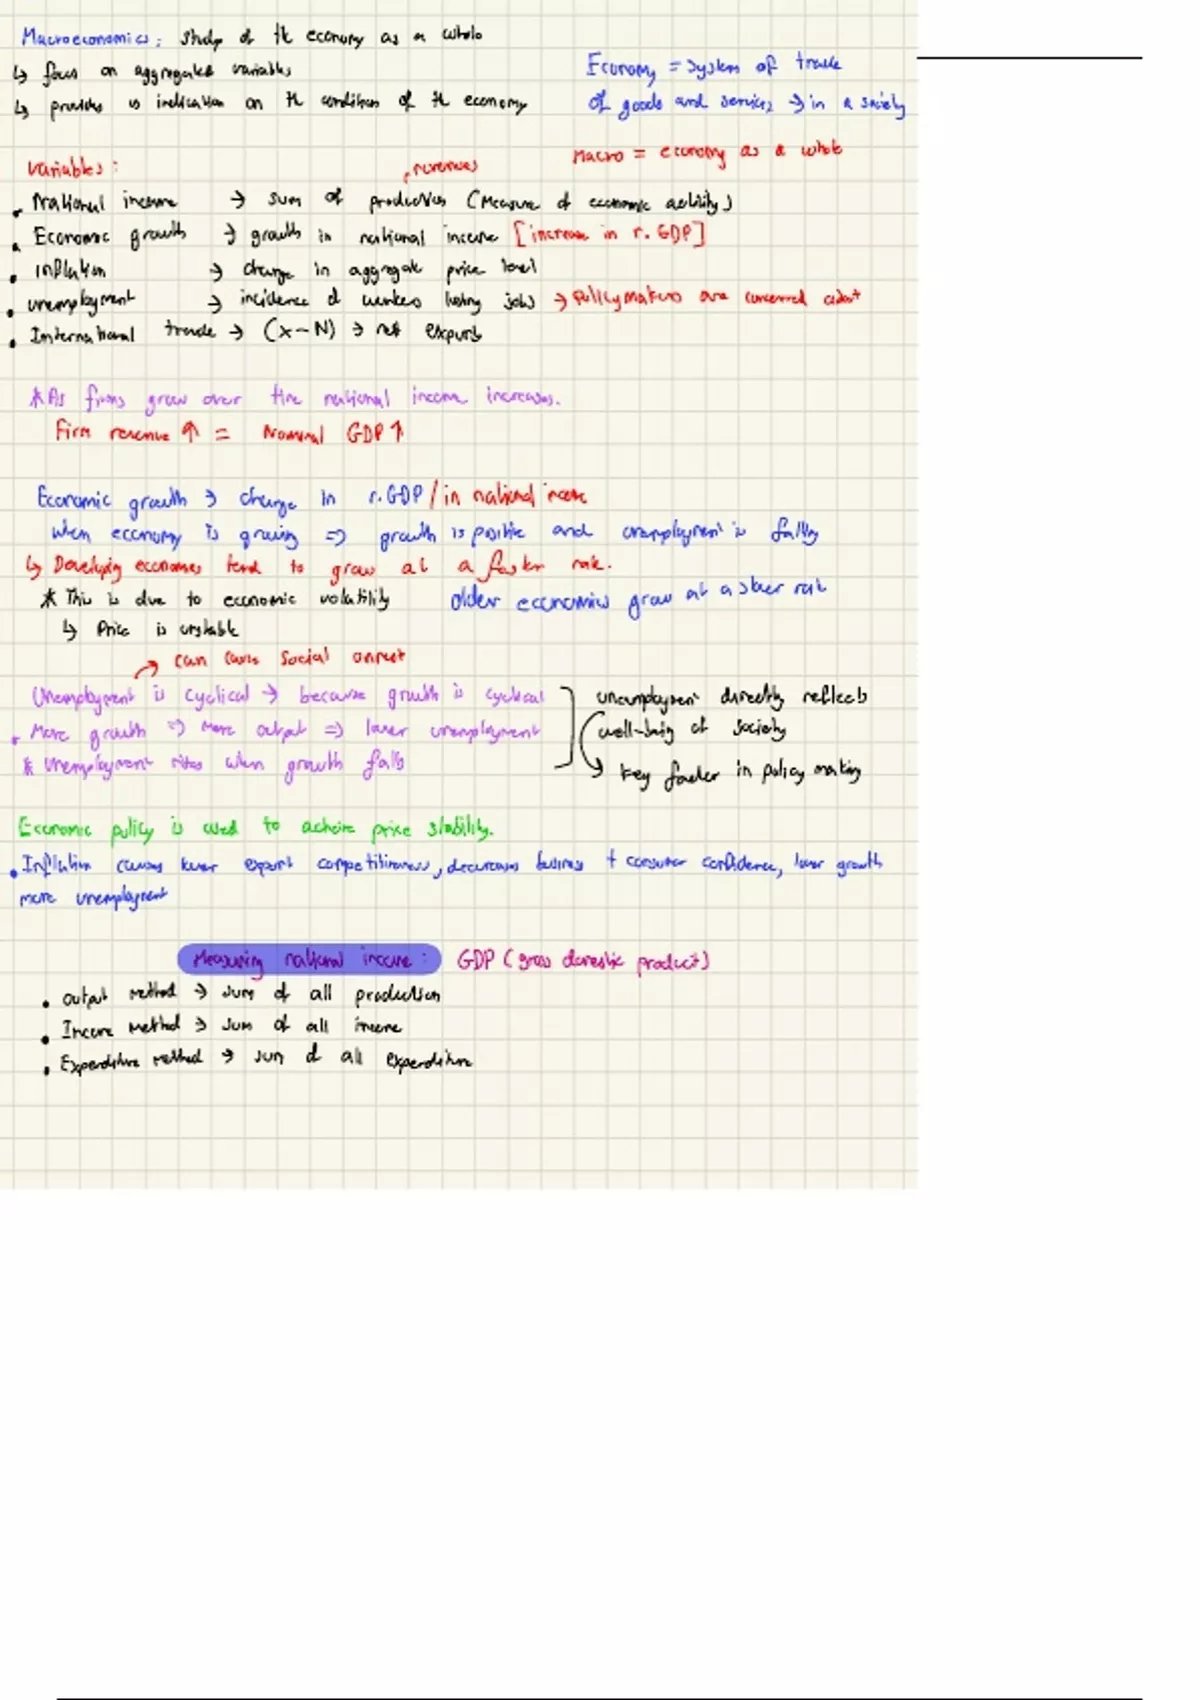 Macroeconomics: study of the economy as a whole
↳ focus on aggregated variables
↳ provides us indication on the conditions of the economy
Economy = system of trade
of goods and services → in a society
Macro = economy as a whole
Variables:
revenues
• National income → sum of production (Measure of economic activity)
• Economic growth → growth in national income [increase in r.GDP]
• Inflation → change in aggregate price level
• unemployment → incidence of workers losing jobs → policymakers are concerned about
• International trade → (X-N) → net exports
* As firms grow over time national income increases.
Firm revenue ↑ = Nominal GDP ↑
Economic growth → change in r.GDP / in national income
When economy is growing ⇒ growth is positive and unemployment is falling
↳ Developing economies tend to grow at a faster rate.
* This is due to economic volatility older economies grow at a slower rate
↳ Price is unstable
→ can cause social unrest
Unemployment is cyclical → because growth is cyclical
• More growth ⇒ more output ⇒ lower unemployment
* Unemployment rises when growth falls
unemployment directly reflects
well-being of society
→ key factor in policy making
Economic policy is used to achieve price stability.
• Inflation causes lower export competitiveness, decreases business + consumer confidence, lower growth
more unemployment
Measuring national income: GDP (gross domestic product)
• Output method → sum of all production
• Income method → sum of all income
• Expenditure method → sum of all expenditure